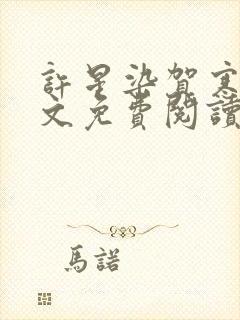 許星染賀寒
文免費閱讀
馬諾